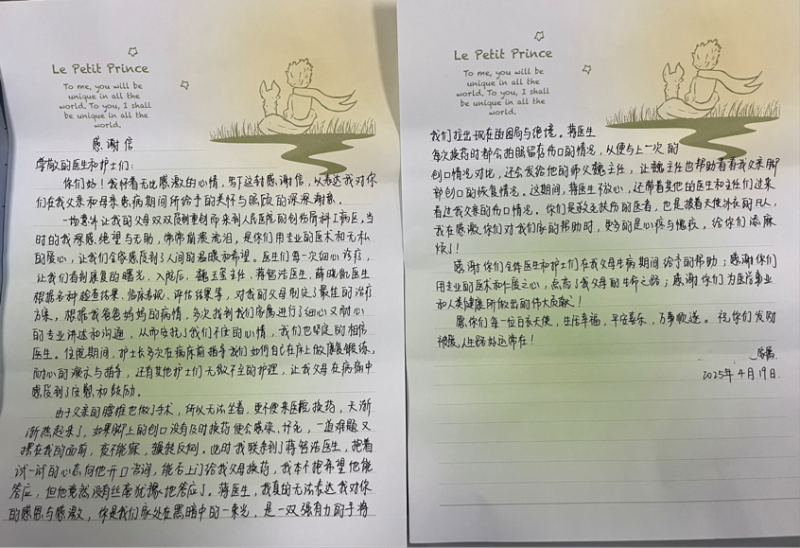 Le Petit Prince
To me, you will be
unique in all the
world. To you, I shall
be unique in all the
world.
感谢信
尊敬的医生和护士们：
你们好！我怀着无比感激的心情，写下这封感谢信，以表达我对你
们在我父亲和母亲患病期间所给予的关怀与照顾的深深谢意。
一场意外让我的父母双双受到重创而来到人民医院的创伤骨科工病区，当
时的我深感绝望与无助，常常崩溃流泪，是你们用专业的医术和无私
的爱心，让我们全家感受到了人间的温暖和希望。医生们每一次细心诊疗，
让我们看到康复的曙光，入院后，魏玉星主任、蒋铭浩医生、薛晓航医生
根据各种检查结果、临床表现、评估结果等，对我的父母制定了最佳的治疗
方案，根据我爸爸妈妈的病情，多次找到我们家属进行了细心又耐心
的专业讲述和沟通，从而安抚了我们不安的心情，我们也坚定的相信
医生。住院期间，护士长多次在病床前指导我们如何自己在床上做康复锻炼，
耐心的演示与指导，还有其他护士们无微不至的护理，让我父母在病痛中
感受到了安慰和鼓励。
由于父亲的腰椎也做了手术，所以无法坐着，更不便来医院换药，天渐
渐热起来了，如果脚上的创口没有及时换药便会感染、坏死，一道难题又
摆在我的面前，夜不能寐，辗转反侧。此时我联系到了蒋铭浩医生，抱着
试一试的心态向他开口咨询，能否上门给我父母换药，我本不抱希望他能
答应，但他竟然没有丝毫犹豫地答应了。蒋医生，我真的无法表达我对你
的感恩与感激，你是我们家处在黑暗中的一束光，是一双强有力的手将
Le Petit Prince
To me, you will be
unique in all the
world. To you, I shall
be unique in all the
world.
我们拉出现在的困局与绝境。蒋医生
每次换药时都会拍照留存伤口的情况，以便与上一次的
创口情况对比，还会发给他的师父魏主任，让魏主任也帮助看看我父亲脚
部创口的恢复情况。这期间，蒋医生不放心，还带着其他的医生和主任们过来
看过我父亲的伤口情况。你们是救死扶伤的医者，也是披着天使外衣的凡人，
我在感激你们对我们家的帮助时，更多的是心疼与愧疚。给你们添麻
烦了！
感谢你们全体医生和护士们在我父母生病期间给予的帮助；感谢你们
用专业的医术和仁爱之心，点亮了我父母的生命之路；感谢你们为医疗事业
和人类健康所做出的伟大贡献！
愿你们每一位白衣天使，生活幸福，平安喜乐，万事顺遂。祝你们发财
家属
2025年4月19日.